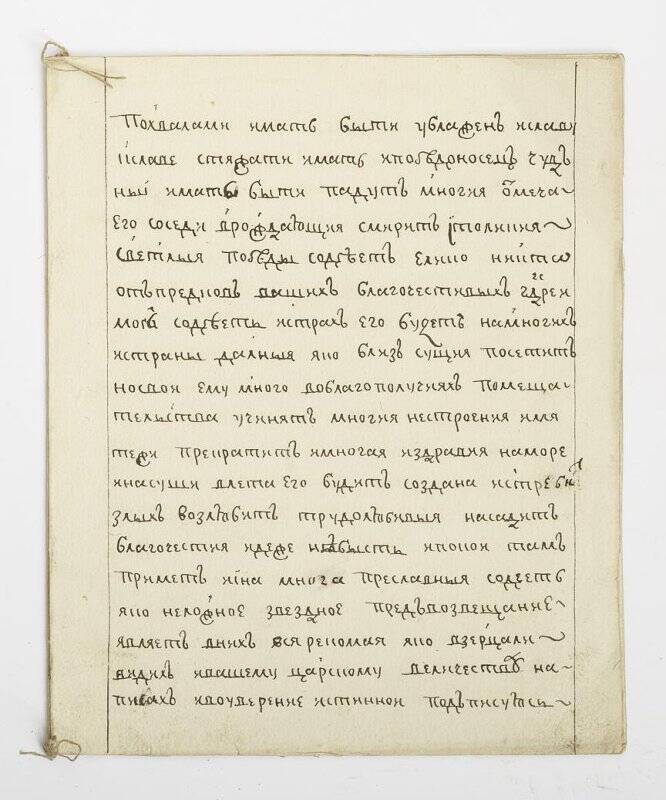 Похвалами имать быти ублаженъ и слав
и славе стяжати имать и победоносецъ чуд
ный имать быти падутъ многия от меча
его соседи враждающия смиритъ
светлыя победы содеетъ елико никто
отъ предковъ вашихъ благочестивыхъ гдрей
могъ содеети и страхъ его будетъ на многихъ
и страны далныя яко близъ сущия посетитъ
но свои ему много во благополучияхъ помеша
телства учинятъ многия нестроения и мя
тежи прекратитъ и многая издравия на море
и на суши влета его будитъ создана истреби
злыхъ возлюбитъ трудолюбивыя насадитъ
благочестия идеже не бысть и покои тамъ
приметъ и ина многа преславныя содеетъ
яко неложное звездное предъвозвещание
являетъ в нихъ вся реченная яко в зерцали
видихъ и вашему царскому величеству на
писахъ и во уверение истинное подъписуюся